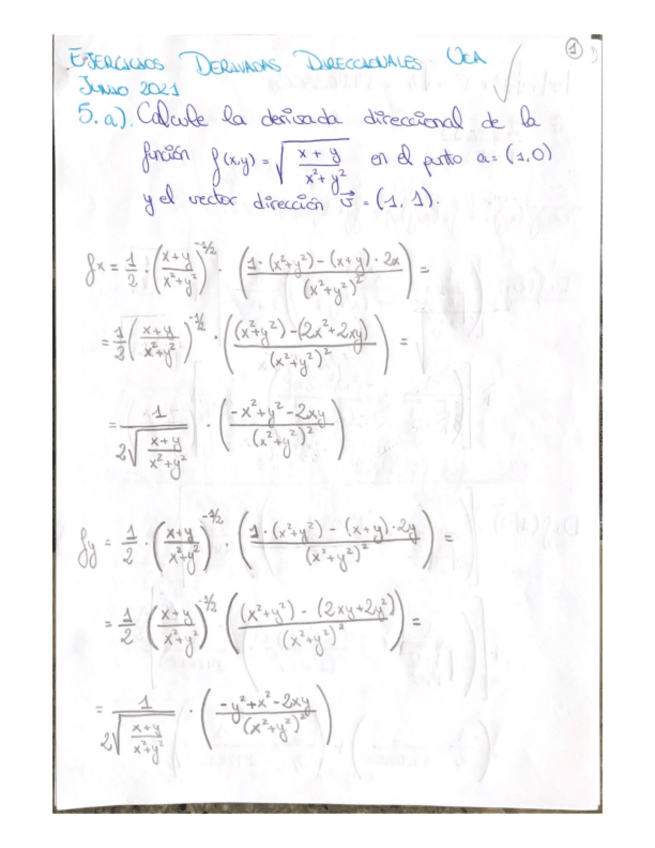 ①
EJERCICIOS DERIVADAS DIRECCIONALES UCA
JUNIO 2021
5. a). Calcule la derivada direccional de la
función f(x,y) = √((x + y)/(x² + y²)) en el punto a = (1,0)
y el vector dirección v⃗ = (1, 1).
fx = 1/2 · ((x+y)/(x²+y²))^(-1/2) · ((1·(x²+y²) - (x+y)·2x)/(x²+y²)²) =
= 1/2 ((x+y)/(x²+y²))^(-1/2) · (((x²+y²) - (2x²+2xy))/(x²+y²)²) =
= 1/(2√((x+y)/(x²+y²))) · ((-x²+y²-2xy)/(x²+y²)²)
fy = 1/2 · ((x+y)/(x²+y²))^(-1/2) · ((1·(x²+y²) - (x+y)·2y)/(x²+y²)²) =
= 1/2 ((x+y)/(x²+y²))^(-1/2) (((x²+y²) - (2xy+2y²))/(x²+y²)²) =
= 1/(2√((x+y)/(x²+y²))) · ((-y²+x²-2xy)/(x²+y²)²)